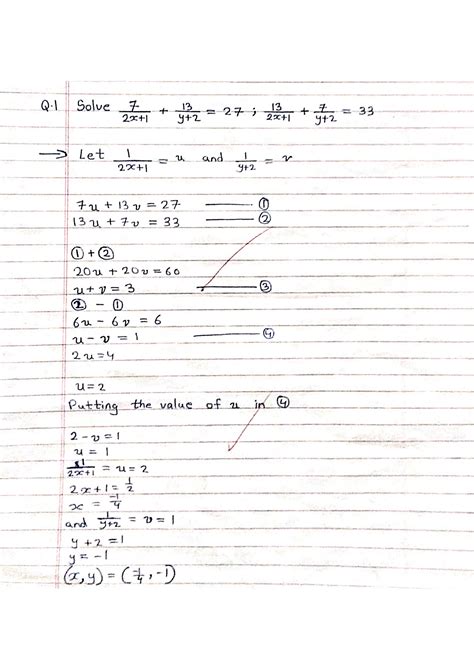 Q.1 Solve 7/(2x+1) + 13/(y+2) = 27 ; 13/(2x+1) + 7/(y+2) = 33
→ Let 1/(2x+1) = u and 1/(y+2) = v
7u + 13v = 27 —— ①
13u + 7v = 33 —— ②
① + ②
20u + 20v = 60
u + v = 3 —— ③
② - ①
6u - 6v = 6
u - v = 1 —— ④
2u = 4
u = 2
Putting the value of u in ④
2 - v = 1
u = 1
1/(2x+1) = u = 2
2x + 1 = 1/2
x = -1/4
and 1/(y+2) = v = 1
y + 2 = 1
y = -1
(x, y) = (-1/4, -1)